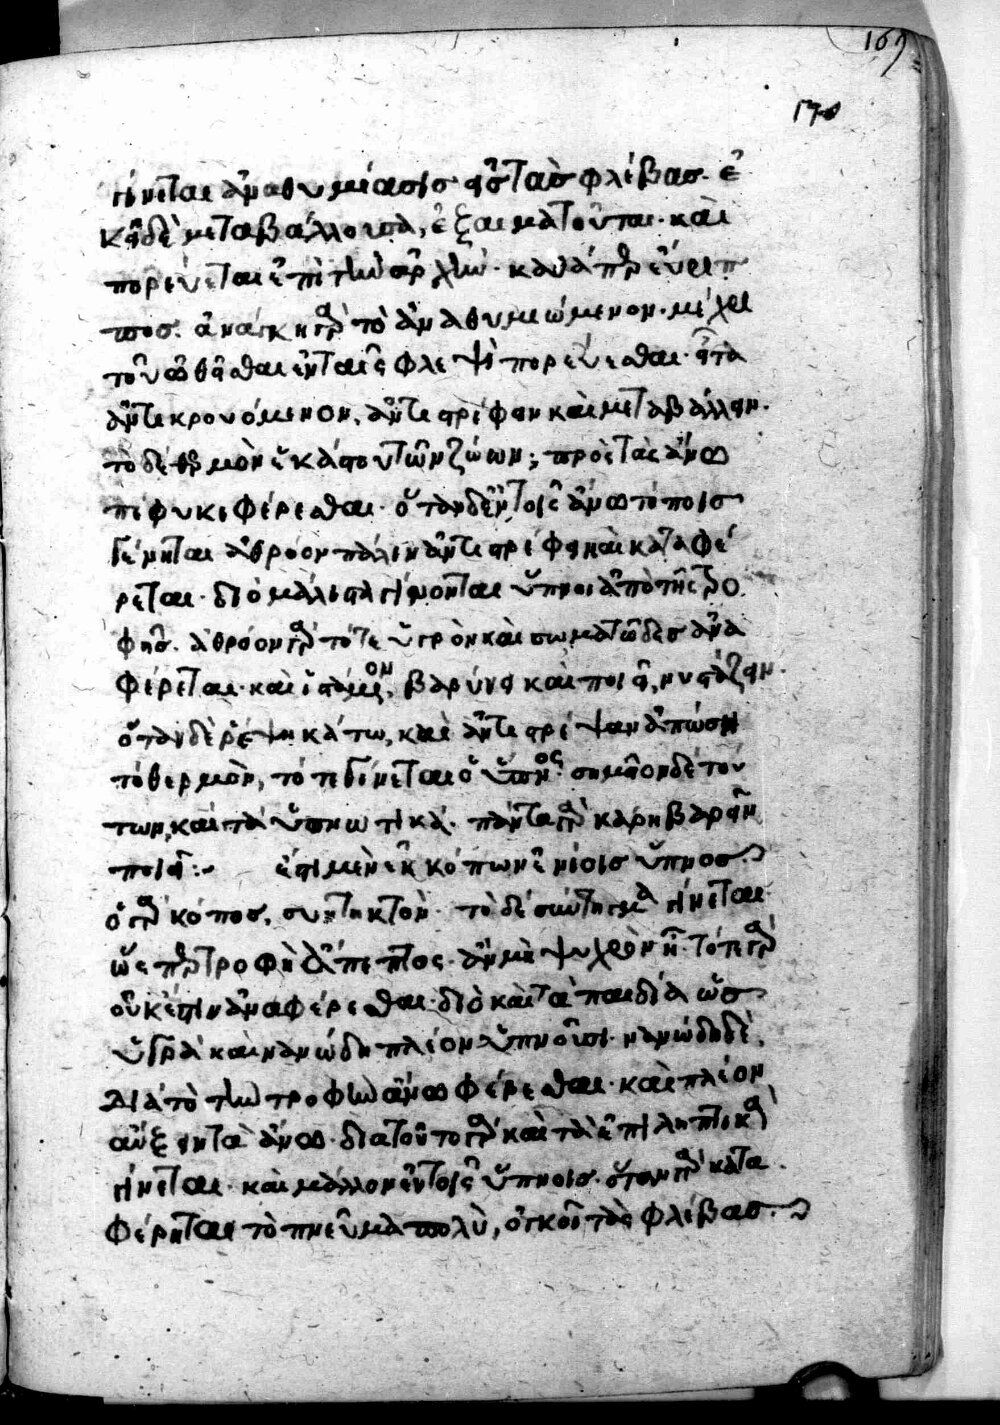 169
170
γίνεται ἀναθυμίασις εἰς τὰς φλέβας. ἐ
κεῖ δὲ μεταβάλλουσα, ἐξαιματοῦται. καὶ
πορεύεται ἐπὶ τὴν ἀρχήν. καθάπερ εὔριπ
πος. ἀνάγκη γὰρ τὸ ἀναθυμιώμενον. μέχρι
τοῦ ὠθεῖσθαι ἐν ταῖς φλεψὶ πορεύεσθαι. εἶτα
ἀντικρουόμενον, ἀντιστρέφειν καὶ μεταβάλλειν.
τὸ δὲ θερμὸν ἑκάστου τῶν ζώων; πρὸς τὰς ἄνω
πέφυκε φέρεσθαι. ὅταν δ' ἐν τοῖς ἄνω τόποις
γένηται ἀθρόον πάλιν ἀντιστρέφει καὶ καταφέ
ρεται. διὸ μάλιστα γίνονται ὕπνοι ἀπὸ τῆς τρο
φῆς. ἀθρόον γὰρ τότε ὑγρὸν καὶ σωματῶδες ἀνα
φέρεται. καὶ ἱστάμενον, βαρύνει καὶ ποιεῖ, νυστάζειν.
ὅταν δὲ ῥέψη κάτω, καὶ ἀντιστρέψαν ἀπώση
τὸ θερμὸν, τότε γίνεται ὁ ὕπνος. σημεῖον δὲ τού
των, καὶ τὰ ὑπνωτικά. πάντα γὰρ καρηβαρεῖν
ποιεῖ:~ ἔτι μὲν ἐκ κόπων ἐνίοις ὕπνος.
ὁ γὰρ κόπος, συντηκτὸν. τὸ δὲ σύντηγμα γίνεται
ὥσπερ τροφὴ ἄπεπτος. ἂν μὴ ψυχρὸν ᾖ. τότε γὰρ
οὐκ ἔστιν ἀναφέρεσθαι. διὸ καὶ τὰ παιδία ὡς
ὑγρὰ καὶ νανώδη πλεῖον ὑπνοῦσι. νανώδη δὲ,
διὰ τὸ τὴν τροφὴν ἄνω φέρεσθαι. καὶ πλεῖον
αὔξειν τὰ ἄνω. διὰ τοῦτο γὰρ καὶ τὰ ἐπιληπτικὰ
γίνεται. καὶ μᾶλλον ἐν τοῖς ὕπνοις. ὅταν γὰρ κατα
φέρηται τὸ πνεῦμα πολὺ, ὀγκοῖ τὰς φλέβας.